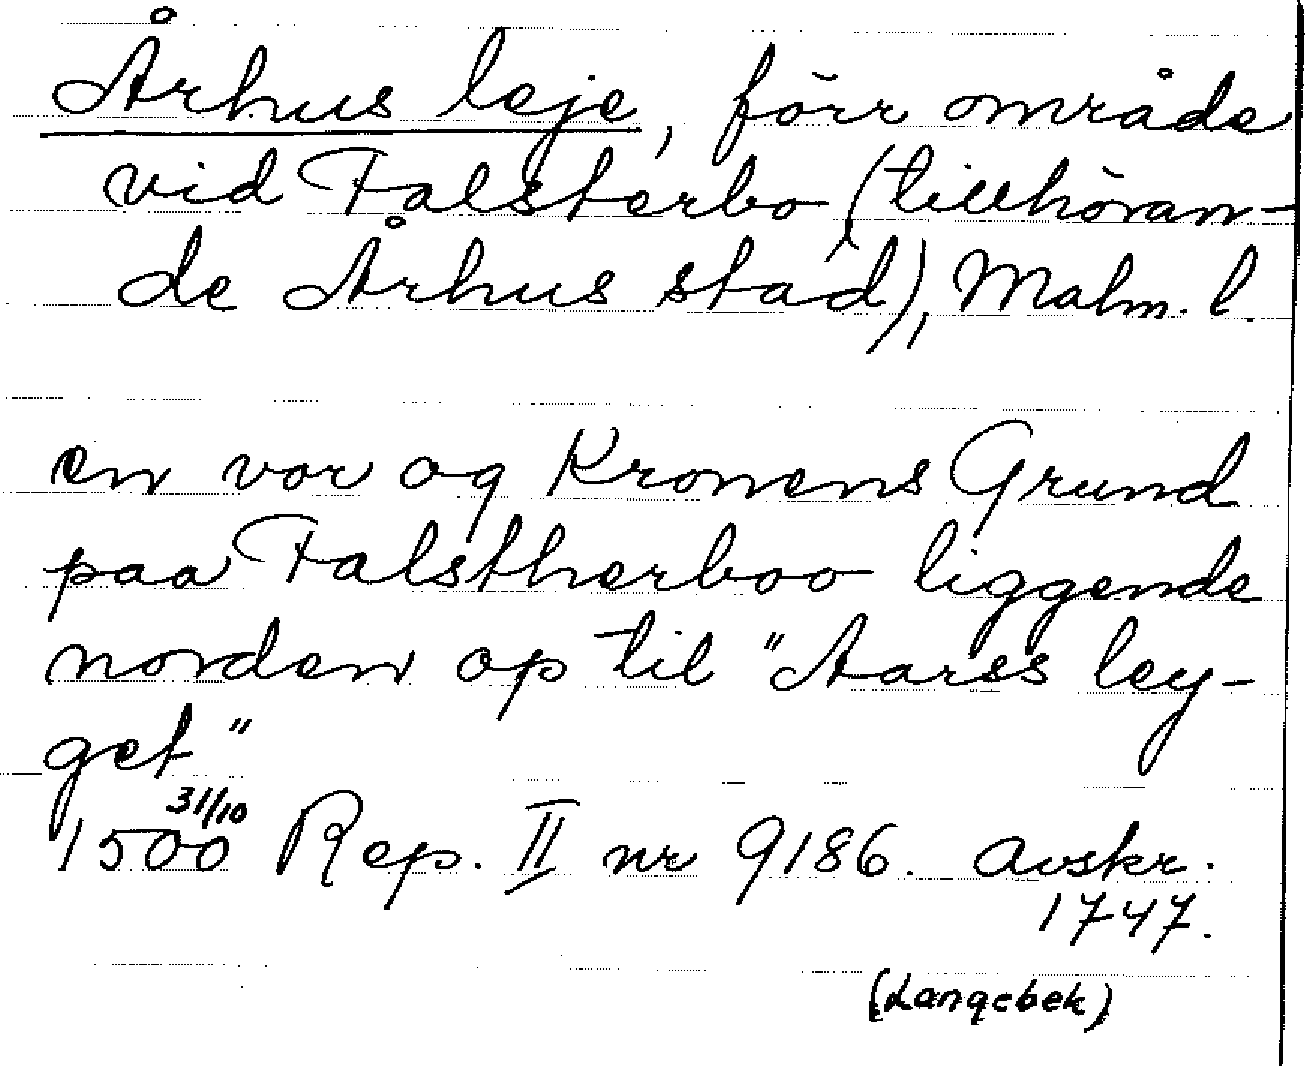 Århus leje, förr område
vid Falsterbo (tillhöran-
de Århus stad), Malm. l.
en vor og Kronens Grund
paa Falstherboo liggende
norden op til "Aarss ley-
get"
31/10
1500 Rep. II nr 9186. Avskr.
1747.
(Langebek)